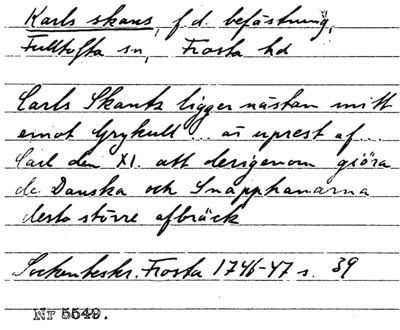 Karls skans, f.d. befästning,
Fulltofta sn, Frosta hd
Carls Skantz ligger nästan mitt
emot Grykull... är uprest af...
Carl den XI. att derigenom giöra
de Danska och Snapphanarna
desto större afbräck
Sockenbeskr. Frosta 1746-47 s. 39
Nr 5549.